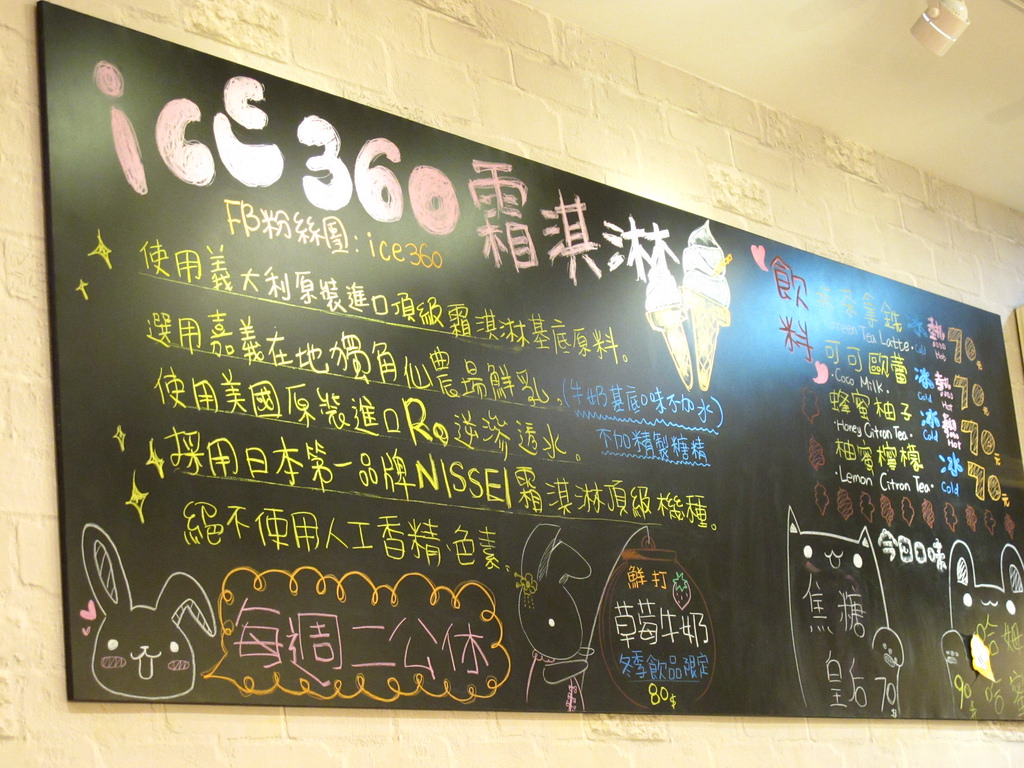 ice360 霜淇淋
FB粉絲團:ice360
使用義大利原裝進口頂級霜淇淋基底原料。
選用嘉義在地獨角仙農場鮮乳。(牛奶基底口味不加水)
使用美國原裝進口Ro逆滲透水。 不加精製糖精
採用日本第一品牌NISSEI霜淇淋頂級機種。
絕不使用人工香精.色素.
每週二公休
鮮打
草莓牛奶
冬季飲品限定
80$
飲料
抹茶拿鐵 冰 熱 70.
Green Tea Latte. Cold Hot
可可歐蕾 冰 熱 70.
·Coco Milk. Cold Hot
蜂蜜柚子 冰 熱 70.
·Honey Citron Tea. Cold Hot
柚蜜檸檬 冰 70.
·Lemon Citron Tea. Cold
今日口味
焦糖
皇后 70
哈姆
哈蜜
90